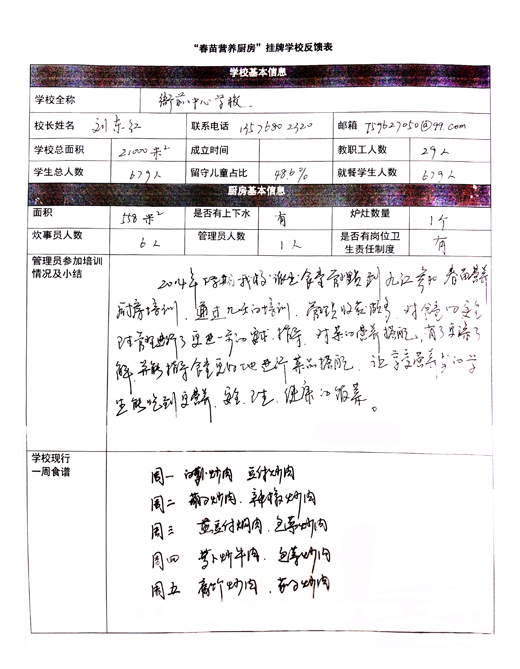 “春苗营养厨房”挂牌学校反馈表
学校基本信息
学校全称 衙前中心学校
校长姓名 刘东红 联系电话 邮箱 759627050@qq.com
学校总面积 21000米² 成立时间 教职工人数 29人
学生总人数 679人 留守儿童占比 48.6% 就餐学生人数 679人
厨房基本信息
面积 558米² 是否有上下水 有 炉灶数量 1个
炊事员人数 6人 管理员人数 1人 是否有岗位卫生责任制度 有
管理员参加培训
情况及小结
2014年 我校派出食堂管理员到九江参加春苗营养
厨房培训,通过 培训,管理员收获 多,对食堂的安全
进行了更进一步的 指导,对菜的营养搭配,有了更深了
解,并能指导食堂更好地进行菜品搭配,让享受营养 的学
生能吃到更营养、安全、卫生、健康的饭菜。
学校现行
一周食谱
周一 炒肉 豆付炒肉
周二 炒肉、辣椒炒肉
周三 豆付焖肉、包菜炒肉
周四 萝卜炒牛肉、包菜炒肉
周五 炒肉、 炒肉